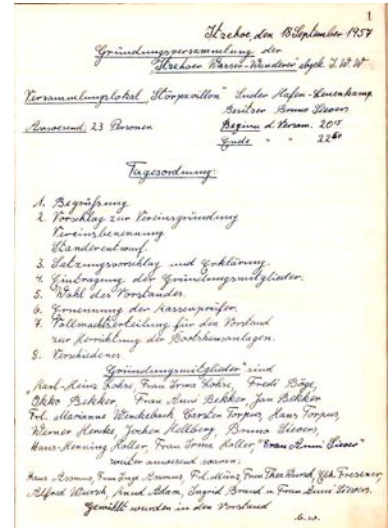 1
Itzehoe, den 18 September 1957
Gründungsversammlung der
"Itzehoer Wasser-Wanderer" abgek. I.W.W
Versammlungslokal "Störpavillon" Suder Hafen-Leuenkamp
Besitzer Bruno Sievers
Anwesend: 23 Personen Beginn d. Versam. 20
Ende " " 22
Tagesordnung:
1. Begrüßung
2. Vorschlag zur Vereinsgründung
Vereinsbenennung
Standerentwurf.
3. Satzungsvorschlag und Erklärung.
4. Eintragung der Gründungsmitglieder.
5. Wahl des Vorstandes.
6. Ernennung der Kassenprüfer.
7. Vollmachtserteilung für den Vorstand
zur Herrichtung der Bootshausanlagen.
8. Verschiedenes.
"Gründungsmitglieder" sind
Karl-Heinz Lohse, Frau Irma Lohse, Fredi Böge,
Okko Bekker, Frau Anni Bekker, Jan Bekker
Frl. Marianne Wenckebach, Carsten Torpus, Hans Torpus,
Werner Henke, Jochen Hellberg, Bruno Sievers,
Hans-Henning Holler, Frau Irma Holler, "Frau Anni Sievers"
weiter anwesend waren:
Hans Assmus, Frau Inge Assmus, Frl. Münz, Frau Thea Wursch,
Alfred Wursch, Adam, Ingrid Brand u. Frau Anni Sievers.
Gewählt wurden in den Vorstand
b.w.